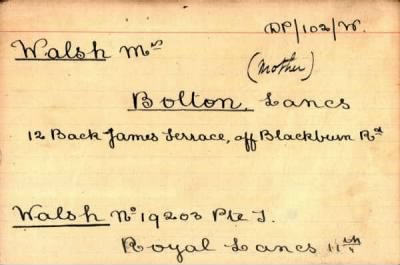 DP/102/W.
Walsh Mrs
(Mother)
Bolton, Lancs
12 Back James Terrace, off Blackburn Rd
Walsh No 19203 Pte J.
Royal Lancs 11th